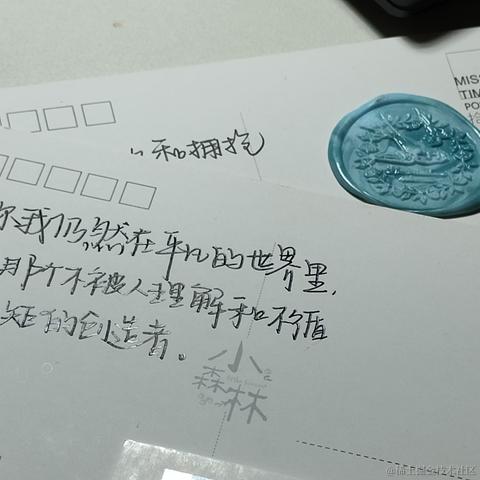 MISS
TIM
PO
和拥抱
你我仍然在平凡的世界里，
那个不被人理解和矛盾
矩的创造者。
小
森林
@稀土掘金技术社区